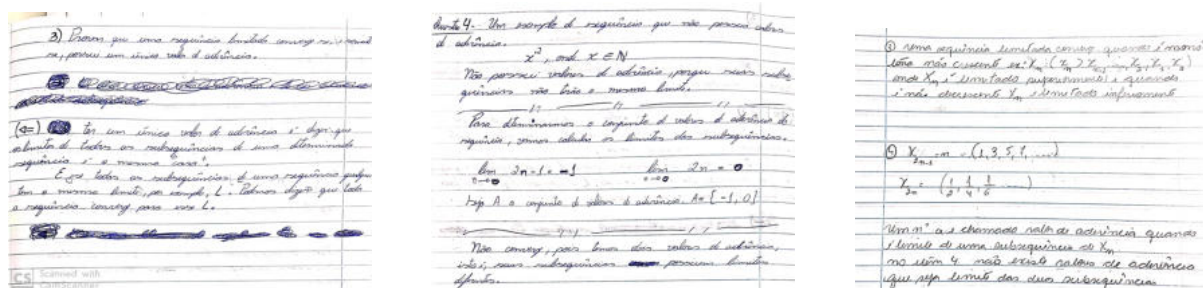 3) Provar que uma sequência limitada converge se, e
se, possui um único valor de aderência.
(⇐) ter um único valor de aderência é dizer que
o limite de todas as subsequências de uma determinada
sequência é o mesmo
E se todas as subsequências de uma sequência qualquer
tem o mesmo limite, por exemplo, L. Podemos dizer que toda
a sequência converge para esse L.
CS Scanned with
CamScanner
4- Um exemplo de sequência que não possui valores
de aderência.
x², onde x ∈ ℕ
Não possui valores de aderência, porque suas subse-
quências não tem o mesmo limite.
Para determinarmos o conjunto de valores de aderência da
sequência, vamos calcular os limites das subsequências.
lim 2n-1 = -1 lim 2n = 0
n→0 n→0
Seja A o conjunto de valores de aderência. A = [-1, 0]
Não converge, pois temos dois valores de aderência,
isto é, suas subsequências possuem limites
diferentes.
3) uma sequência limitada converge quando é monó
tona não crescente
onde Xn é limitado superiormente e quando
é não decrescente Xn é limitado inferiormente
X2n-1 = n = (1, 3, 5, 7, ....)
X2n = (1/2, 1/4, 1/6 ....)
Um nº a é chamado valor de aderência quando
é limite de uma subsequência de Xn
no item 4 não existe valores de aderência
que seja limite das duas subsequências